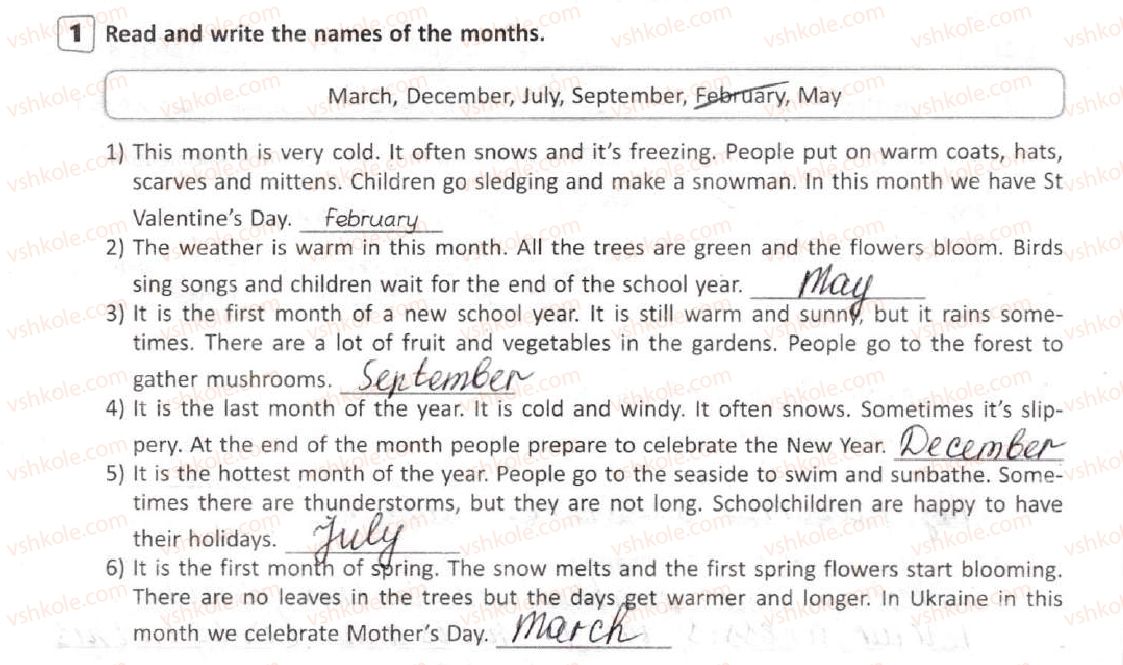 1 Read and write the names of the months.
March, December, July, September, February, May
1) This month is very cold. It often snows and it's freezing. People put on warm coats, hats,
scarves and mittens. Children go sledging and make a snowman. In this month we have St
Valentine's Day. February
2) The weather is warm in this month. All the trees are green and the flowers bloom. Birds
sing songs and children wait for the end of the school year. May
3) It is the first month of a new school year. It is still warm and sunny, but it rains some-
times. There are a lot of fruit and vegetables in the gardens. People go to the forest to
gather mushrooms. September
4) It is the last month of the year. It is cold and windy. It often snows. Sometimes it's slip-
pery. At the end of the month people prepare to celebrate the New Year. December
5) It is the hottest month of the year. People go to the seaside to swim and sunbathe. Some-
times there are thunderstorms, but they are not long. Schoolchildren are happy to have
their holidays. July
6) It is the first month of spring. The snow melts and the first spring flowers start blooming.
There are no leaves in the trees but the days get warmer and longer. In Ukraine in this
month we celebrate Mother's Day. March
vshkole.com